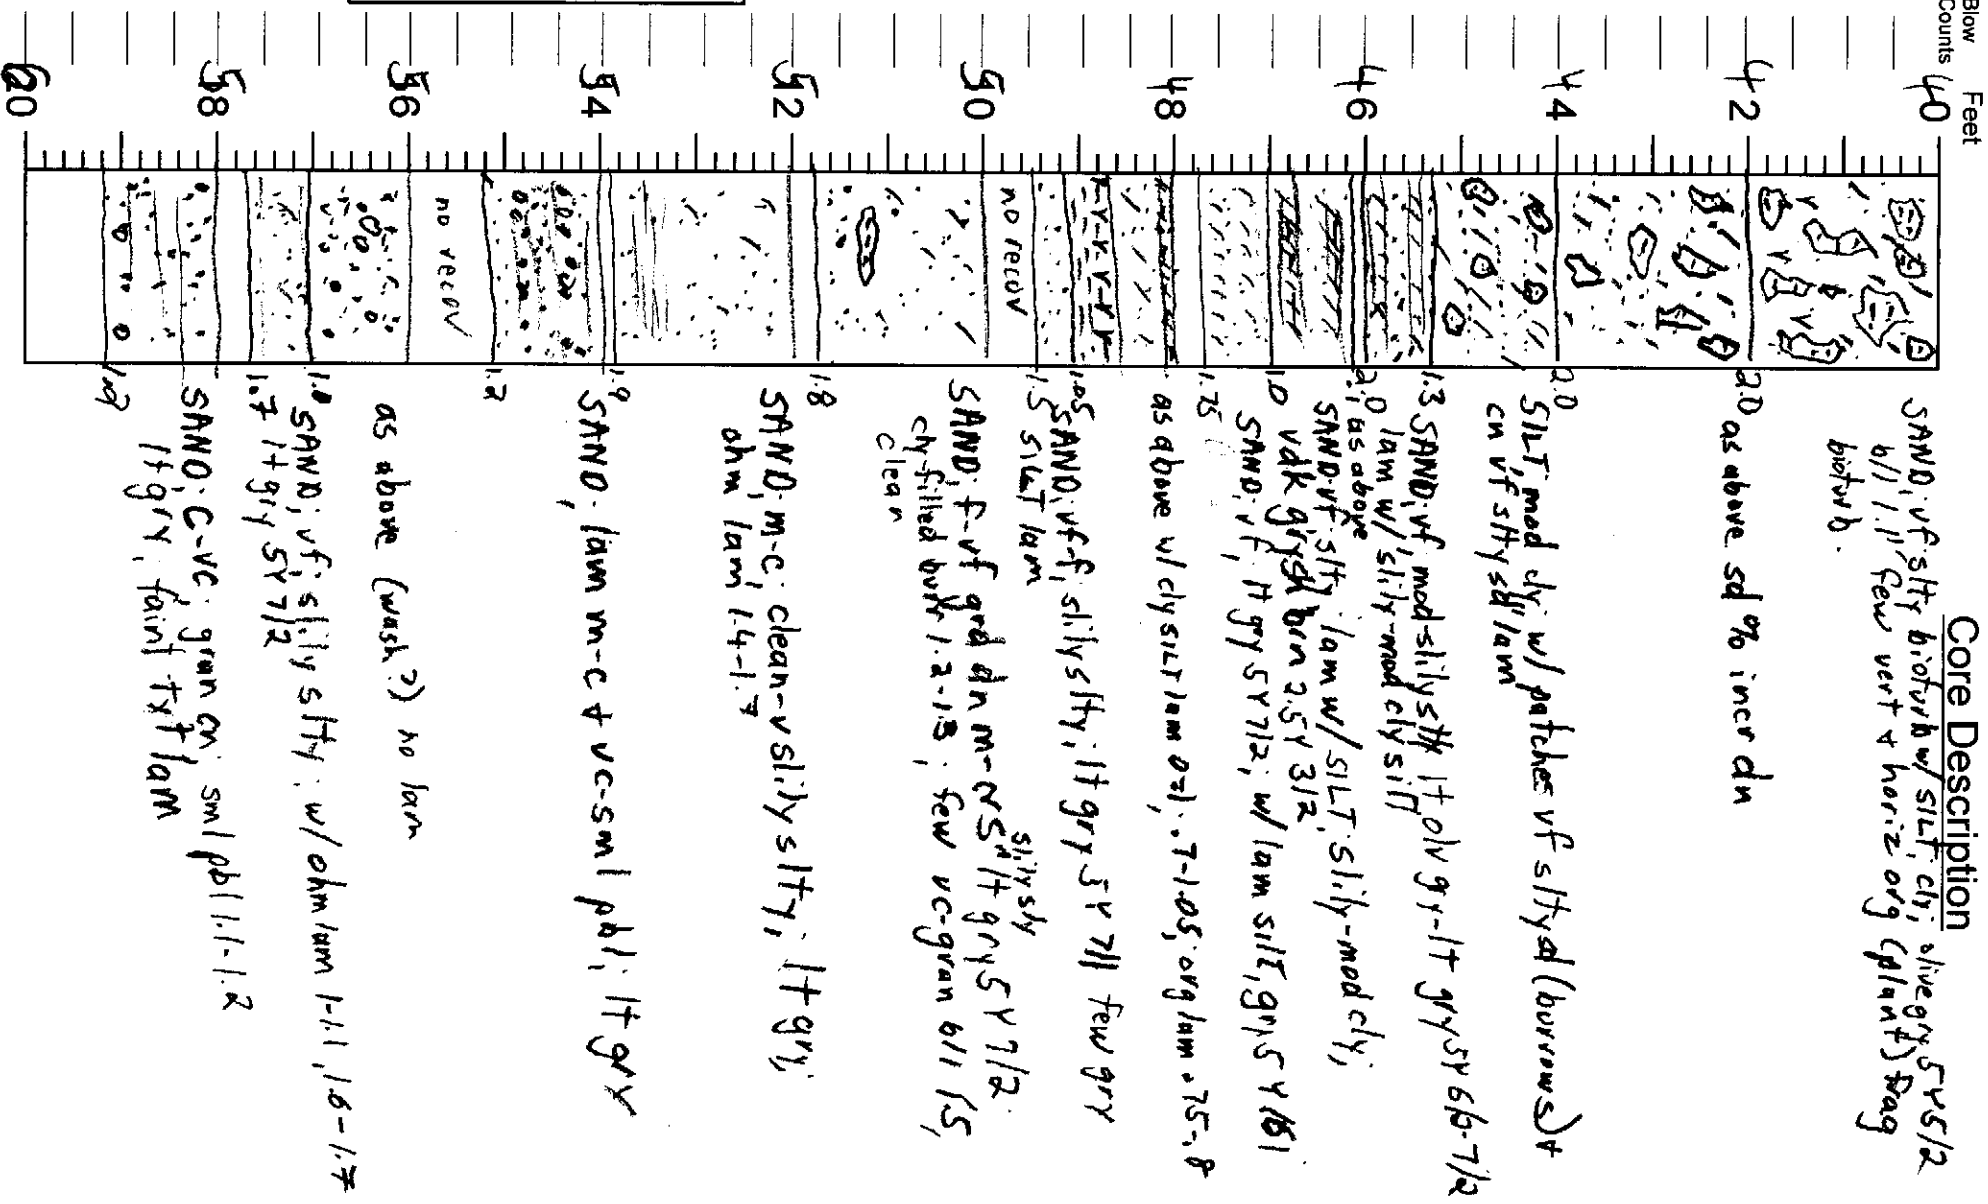 Blow Counts
Feet
Core Description
40
SAND; vf slty bioturb w/ SILT, cly; olive gry 5Y5/2
b/l 1.1' few vert & horiz org (plant) frag
bioturb.
42
2.0
as above sd % incr dn
44
2.0
SILT, mod cly w/ patches vf slty sd (burrows) &
cn vf slty sd lam
1.3
SAND, vf, mod-slily slty lt olv gy-lt gry 5Y 6/2-7/2
lam w/ slily-mod cly silt
46
2.0
as above
SAND vf slty lam w/ SILT, slily-mod cly;
vdk grysh brn 2.5Y 3/2
1.0
SAND, vf, lt gry 5Y 7/2; w/ lam silt, gry 5Y 6/1
1.75
48
as above w/ cly SILT lam 0-.1, .7-1.05, org lam .75-.8
1.05
SAND, vf-f, slily slty, lt gry 5Y 7/1 few gry
SILT lam
1.5
no recov
50
SAND, f-vf grd dn m-c lt gry 5Y 7/2
slily slty
cly-filled burr 1.2-1.3; few vc-gran b/l 1.5,
clean
1.8
52
SAND, m-c, clean-v slily slty; lt gry;
ohm lam 1.4-1.7
1.9
54
SAND, lam m-c & vc-sml pbl; lt gry
1.2
no recov
56
as above (wash?) no lam
1.0
SAND, vf, slily slty; w/ ohm lam 1-1.1, 1.6-1.7
lt gry 5Y 7/2
1.7
58
SAND: C-vc, gran cn; sml pbl 1.1-1.2
lt gry; faint txt lam
60